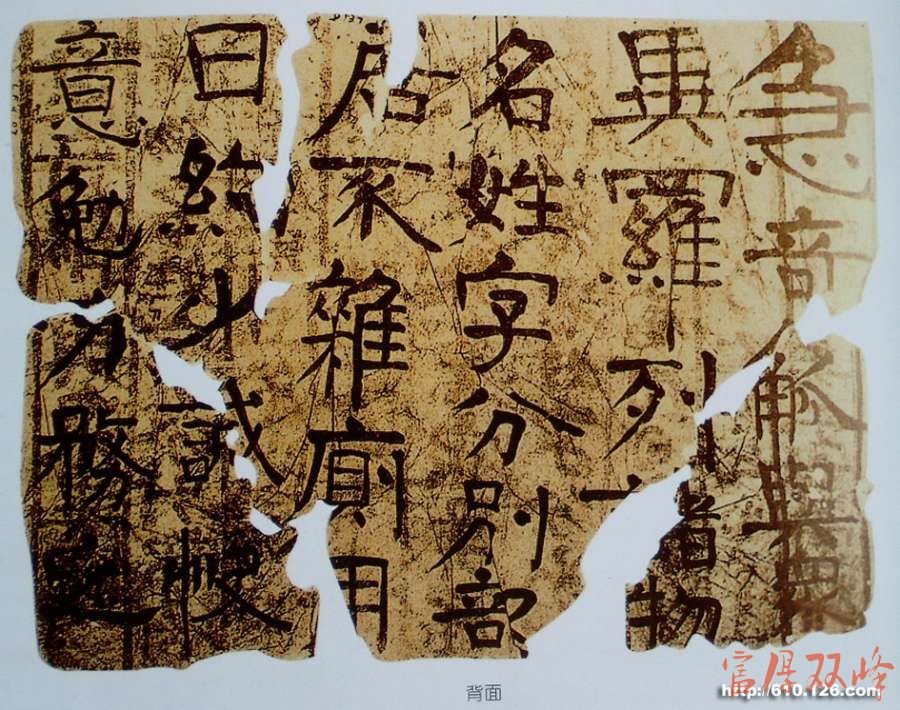 急奇觚與眾
異羅列諸物
名姓字分別部
居不雜廁用
日約少誠快
意勉力務之
背面
富厚双峰
http://610.126.com